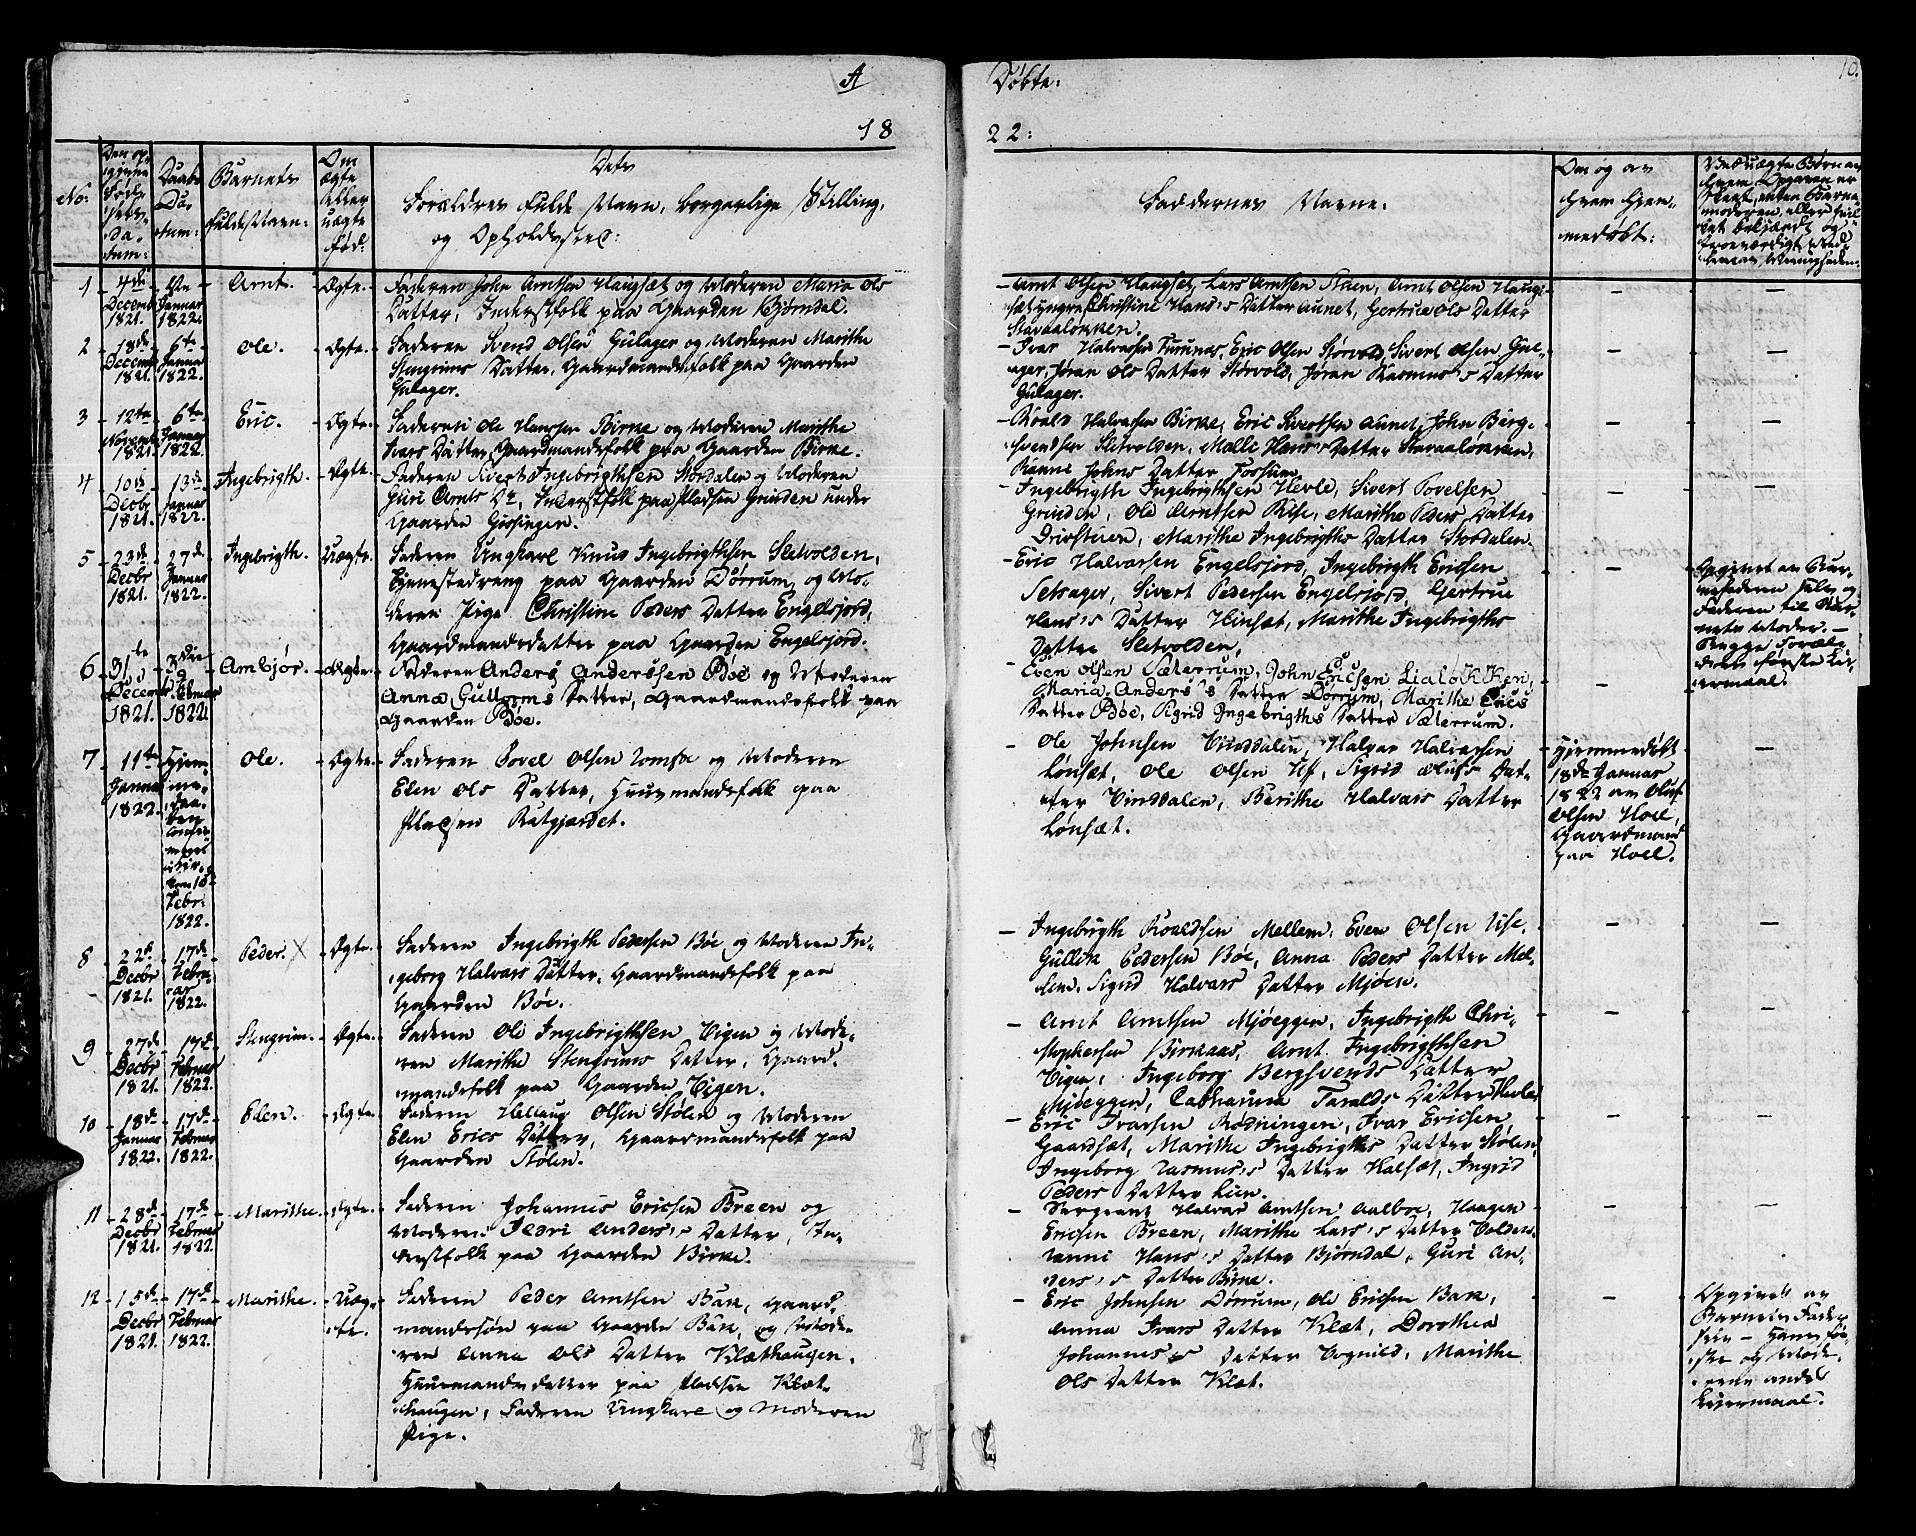 A
Døbte:
10.
18
22:
No:
Den op-
givne
Føds-
sels-
Da-
tum:
Daabs
Da-
tum:
Barnets
fulde Navn:
Om
ægte
eller
uægte
fød:
Dets
Forældres fulde Navn, borgerlige Stilling,
og Opholdssted:
Faddernes Navne:
Om og av
hvem hjem-
medøbt:
1 - 4de Decembr 1821. - Januar 1822. - Arnt. - Ægte. - Faderen John Arntsen Haugsæt og Moderen Maria Ols
Datter, Inderstfolk paa Gaarden Bjørndal.
- Arnt Olsen Haugset, Lars Arntsen Stuen, Arnt Olsen Haug-
sæt yngre, Christine Hans's Datter Aunet, Gertrue Ols Datter
Stavaaløkken.
2 - 18de Decembr 1821. - 6te Januar 1822. - Ole. - Ægte. - Faderen Svend Olsen Gulager og Moderen Marithe
Stengrims Datter, Gaardmandsfolk paa Gaarden
Gulager.
- Ivar Halvorsen Furunes, Eric Olsen Størvold, Sivert Olsen Gul-
ager, Jøran Ols Datter Størvold, Jøran Rasmus's Datter
Gulager.
3 - 12te Novembr 1821. - 6te Januar 1822. - Eric. - Ægte. - Faderen Ole Hansen Birke og Moderen Marithe
Ivers Datter, Gaardmandsfolk paa Gaarden Birke.
- Roald Halvorsen Birke, Eric Sivertsen Aunet, John Berge-
svendsen Sletvolden, Malle Hans's Datter Stavaaløkken,
Johns Datter Fossum.
4 - 10de Decbr 1821. - 13de Januar 1822. - Ingebrigth. - Ægte. - Faderen Sivert Ingebrigthsen Stordalen og Moderen
Guru Arnts Dr, Inderstfolk paa Pladsen Grinden under
Gaarden Gissingen.
- Ingebrigth Ingebrigthsen Hevle, Sivert Povelsen
Grinden, Ole Arntsen Rise, Marithe Peders Datter
Drivstuen, Marithe Ingebrigths Datter Stordalen.
5 - 23de Decbr 1821. - 27de Januar 1822. - Ingebrigth. - Uægte. - Faderen Ungkarl Knud Ingebrigthsen Sletvolden,
Tjenestedreng paa Gaarden Dørrum, og Mo-
deren Pige Christine Peders Datter Engelsjord,
Gaardmandsdatter paa Gaarden Engelsjord.
- Eric Halvorsen Engelsjord, Ingebrigth Ericsen
Setrager, Sivert Pedersen Engelsjord, Gertrue
Hans's Datter Hinsæt, Marithe Ingebrigths
Datter Sletvolden,
Opgivet av Bar-
nefaderen selv og
Faderen til Bar-
nets Moder. -
Begge Foræl-
dres første Lei-
ermaal.
6 - 31te Decembr 1821. - Februar 1822. - Ambjør. - Ægte. - Faderen Anders Anderssen Bøe og Moderen
Anna Gulloms Datter, Gaardmandsfolk paa
Gaarden Bøe.
- Even Olsen Sæterrum, John Ericsen Lialøkken,
Maria Anders's Datter Dørrum, Marithe Erics
Datter Bøe, Sigrid Ingebrigths Datter Sæterrum.
7 - 11te Januar 1822. - Hjem-
me-
daa-
ben
confir-
meret
i Kir-
ken 10de
Febr:
1822. - Ole. - Ægte. - Faderen Povel Olsen og Moderen
Elen Ols Datter, Huusmandsfolk paa
Pladsen Ratgjærdet.
- Ole Johnsen Vinddalen, Halvor Halvorsen
Lønsæt, Ole Olsen Uf, Sigrid Olufs Dat-
ter Vinddalen, Berithe Halvars Datter
Lønsæt.
- Hjemmedøbt
18de Januar
1822 av Oluf
Olsen Hoel,
Gaardmand
paa Hoel.
8 - 22de Decbr 1821. - 17de Februar 1822. - Peder. X - Ægte. - Faderen Ingebrigth Pedersen Bøe og Moderen In-
geborg Halvars Datter, Gaardmandsfolk paa
Gaarden Bøe.
- Ingebrigth Roaldsen Mellem, Even Olsen Use,
Gullik Pedersen Bøe, Anna Peders Datter Mel-
lem, Sigrid Halvars Datter Mjøen.
9 - 27de Decbr 1821. - 17de Februar 1822. - Stengrim. - Ægte. - Faderen Ole Ingebrigthsen Vigen og Mode-
ren Marithe Stengrims Datter, Gaard-
mandsfolk paa Gaarden Vigen.
- Arnt Arntsen Mjøeggen, Ingebrigth Chri-
stophersen Birkaas, Arnt Ingebrigthsen
Vigen, Ingeborg Bergsvends Datter
Mjøeggen, Catharina Taralds Datter
10 - 18de Januar 1822. - 17de Februar 1822. - Elen. - Ægte. - Faderen Hellaug Olsen Stølen og Moderen
Elen Erics Datter, Gaardmandsfolk paa
Gaarden Stølen.
- Eric Ivarsen Rødningen, Ivar Ericsen
Gaardsæt, Marithe Ingebrigths Datter Stølen,
Ingeborg Rasmus's Datter Halsæt, Ingrid
Peders Datter Lien.
11 - 28de Decbr 1821. - 17de Februar 1822. - Marithe. - Ægte. - Faderen Johannes Ericsen Breen og
Moderen Anders's Datter, In-
derstfolk paa Gaarden Birke.
- Sergeant Halvor Arntsen Aalboe, Haagen
Ericsen Breen, Marithe Lars's Datter Volden,
Hans's Datter Bjørndal, Guri An-
ders's Datter Birke.
12 - 15de Decbr 1821. - 17de Februar 1822. - Marithe. - Uæg-
te. - Faderen Peder Arntsen Bak, Gaard-
mandssøn paa Gaarden Bak, og Mode-
ren Anna Ols Datter Klæthaugen,
Huusmandsdatter paa Pladsen Klæt-
haugen, Faderen Ungkarl og Moderen
Pige.
- Eric Johnsen Dørrum, Ole Ericsen Bak,
Anna Ivars Datter Klæt, Dorothea
Johannes's Datter Vognild, Marithe
Ols Datter Klæt.
Opgivet av
Barnets Fader
selv - Hans før-
ste og Mode-
rens andet
Leiermaal.